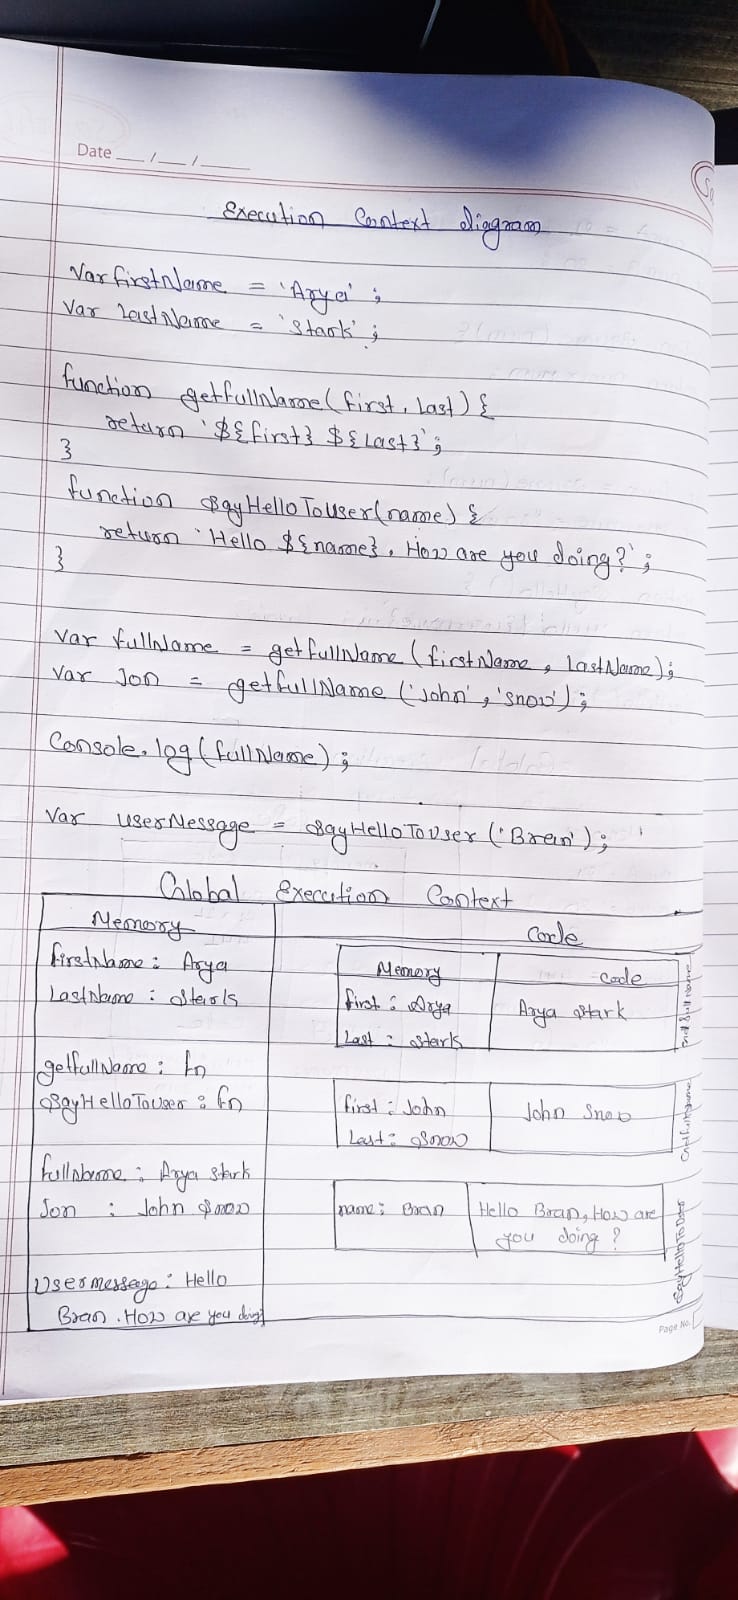 Date __/__/____
Execution Context diagram
Var firstName = 'Arya' ;
Var LastName = 'Stark' ;
function getfullName ( first , Last ) {
return `${first} ${Last}` ;
}
function SayHelloToUser(name) {
return `Hello ${name} , How are you doing?` ;
}
Var fullName = getfullName ( firstName , LastName) ;
Var Jon = getfullName ('John' , 'snow') ;
Console.log ( fullName ) ;
Var userMessage = SayHelloToUser ('Bran') ;
Global Execution Context
Memory
Code
firstName : Arya
LastName : Stark
getfullName : fn
SayHelloToUser : fn
fullName : Arya Stark
Jon : John Snow
Usermessage : Hello
Bran . How are you doing
Memory
Code
first : Arya
Last : Stark
Arya Stark
first : John
Last : Snow
John Snow
name : Bran
Hello Bran, How are
you doing ?
Page No.